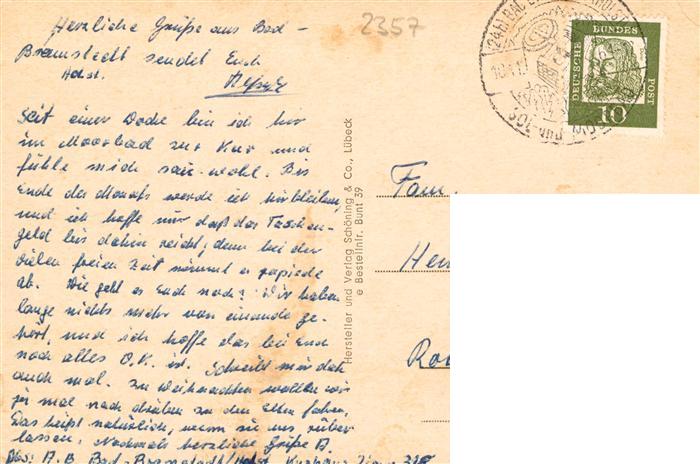 Herzliche Grüße aus Bad-
Bramstedt sendet Euch
Holst.
2357
(24b) BAD
DEUTSCHE
BUNDES
POST
10
Seit einer Woche bin ich hir
im Moorbad zur Kur und
fühle mich sau-wohl. Bis
Ende des Monats werde ich hirbleiben,
und ich hoffe nur daß das Taschen-
geld bis dahin reicht; denn bei der
vielen freien Zeit nimmt es rapiede
ab. Wie geht es Euch noch? Wir haben
lange nichts mehr von einander ge-
hört, und ich hoffe das bei Euch
noch alles O.K. ist. Schreibt mir doch
auch mal. Zu Weihnachten wollen wir
zur mal nach drüben zu den Eltern fahren,
Das heißt natürlich, wenn sie uns rüber
lassen. Nochmals herzliche Grüße A.
Abs: A. B. Bad-Bramstedt/Holst. Kurhaus
Hersteller und Verlag Schöning & Co., Lübeck
e Bestellnr. Bunt 39
Fam.